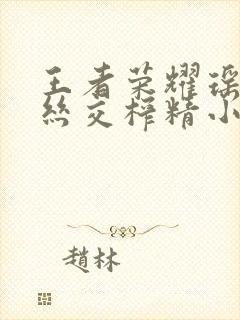 王者荣耀瑶
丝交榨精小
趙林